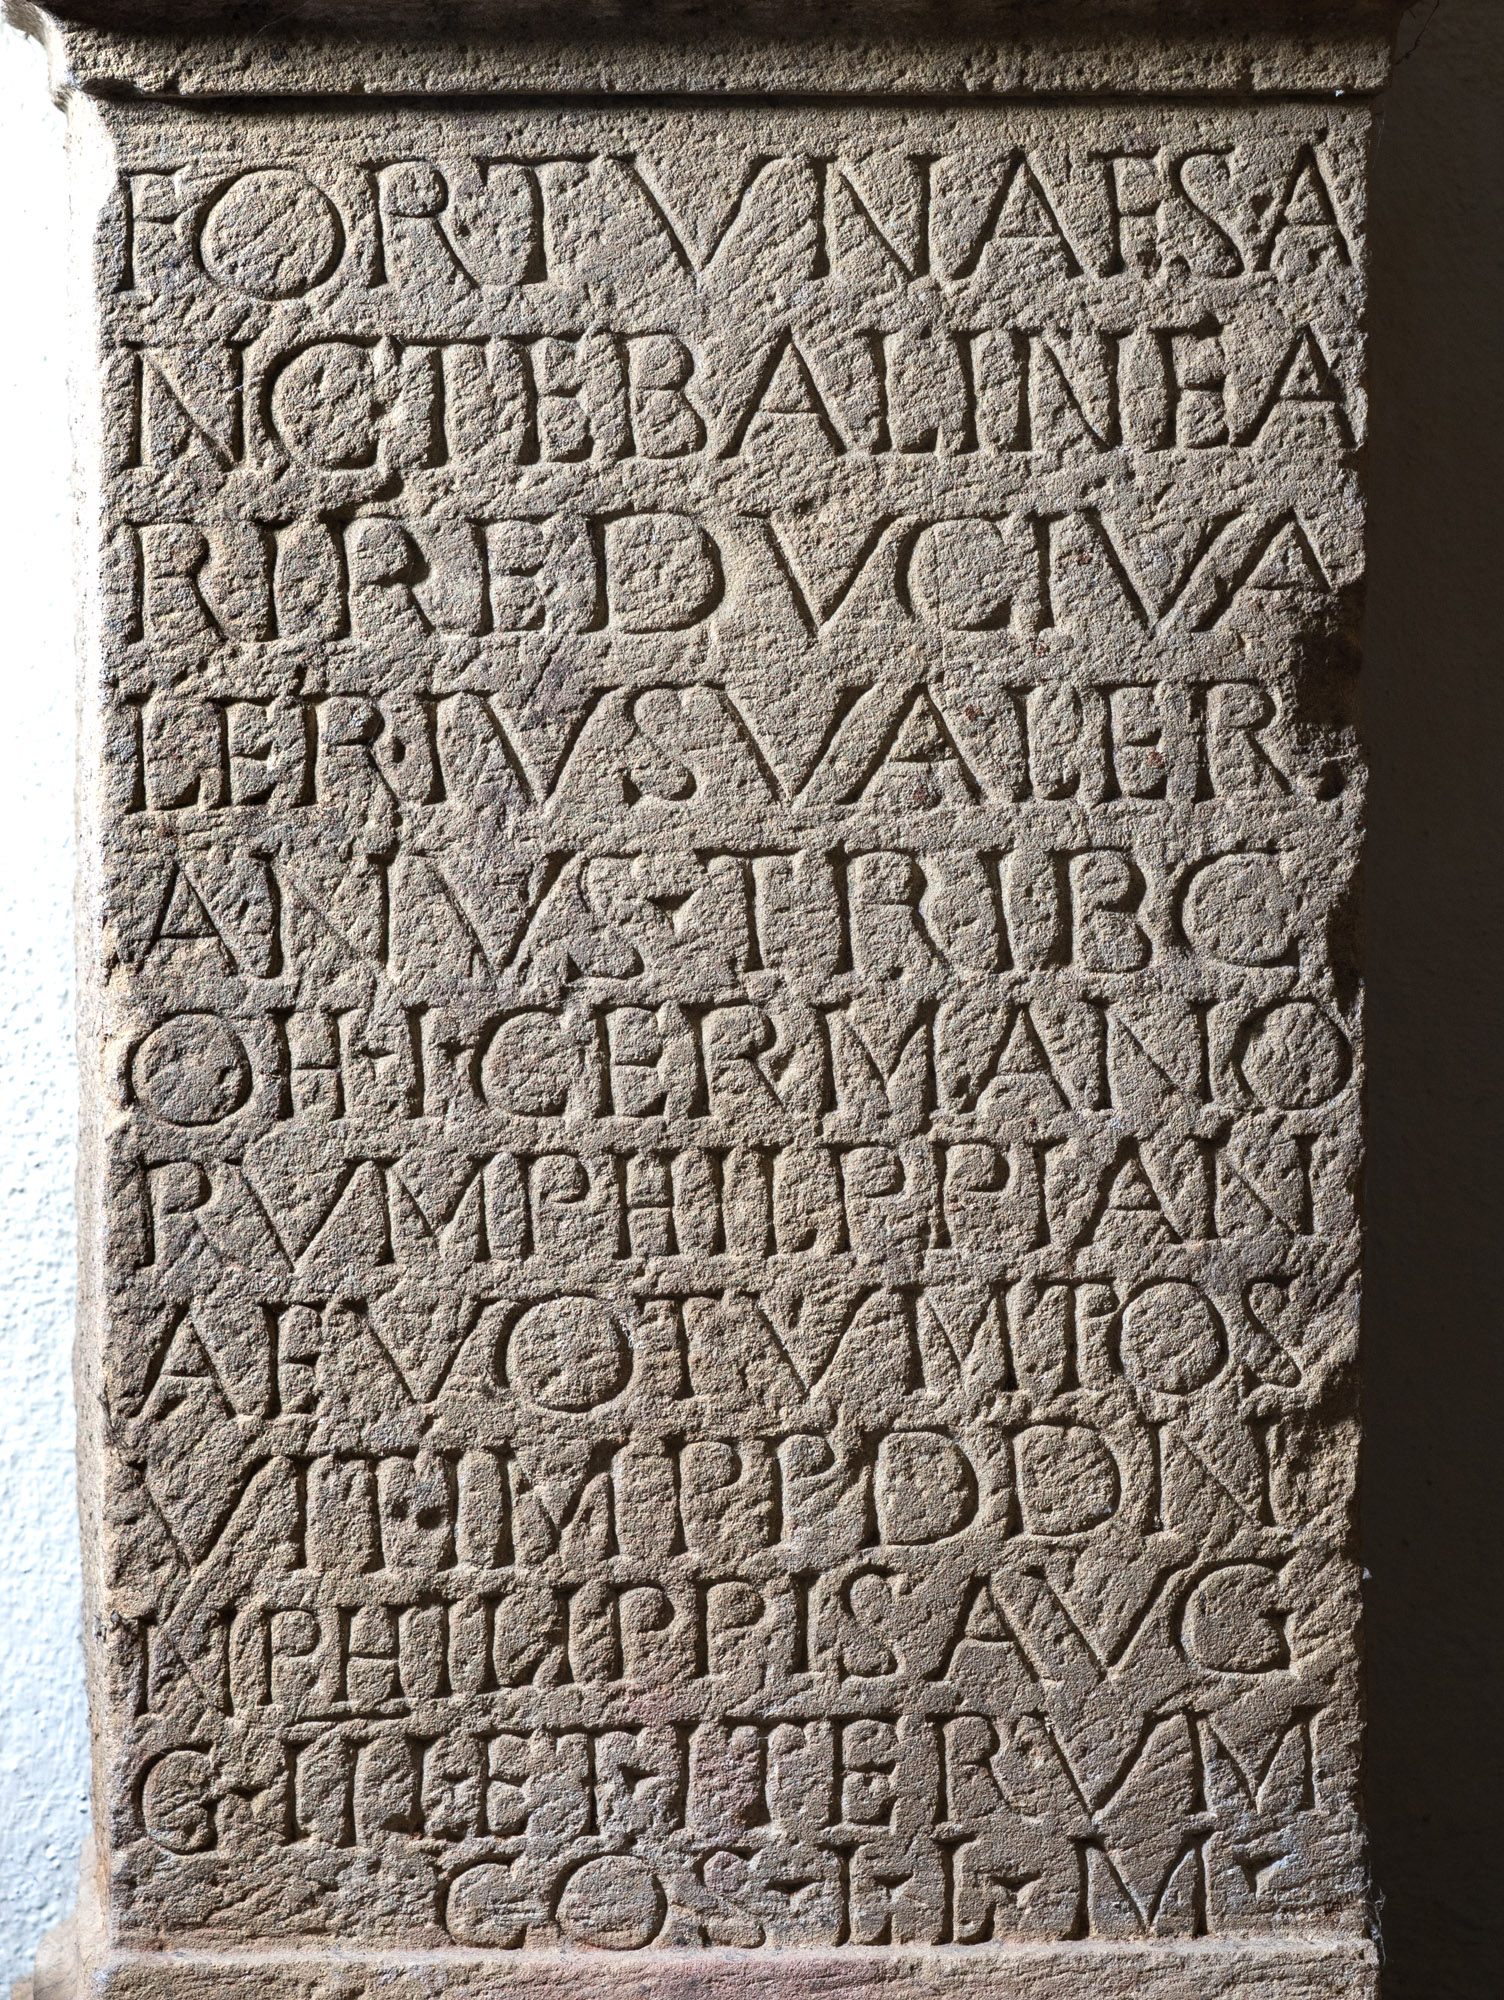 FORTVNAE SA
NCTE BALINEA
RI REDVCI VA
LERIVS VALER
ANVS TRIB C
OH I GERMANO
RVM PHILIPPIAN
AE VOTVM POS
VIT IMPP D D N
N PHILIPPIS AVG
G III ET ITERVM
COS H L M